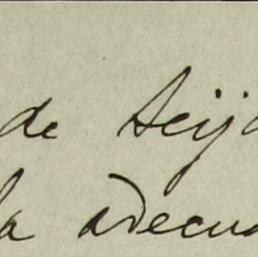 de teija
la adecua